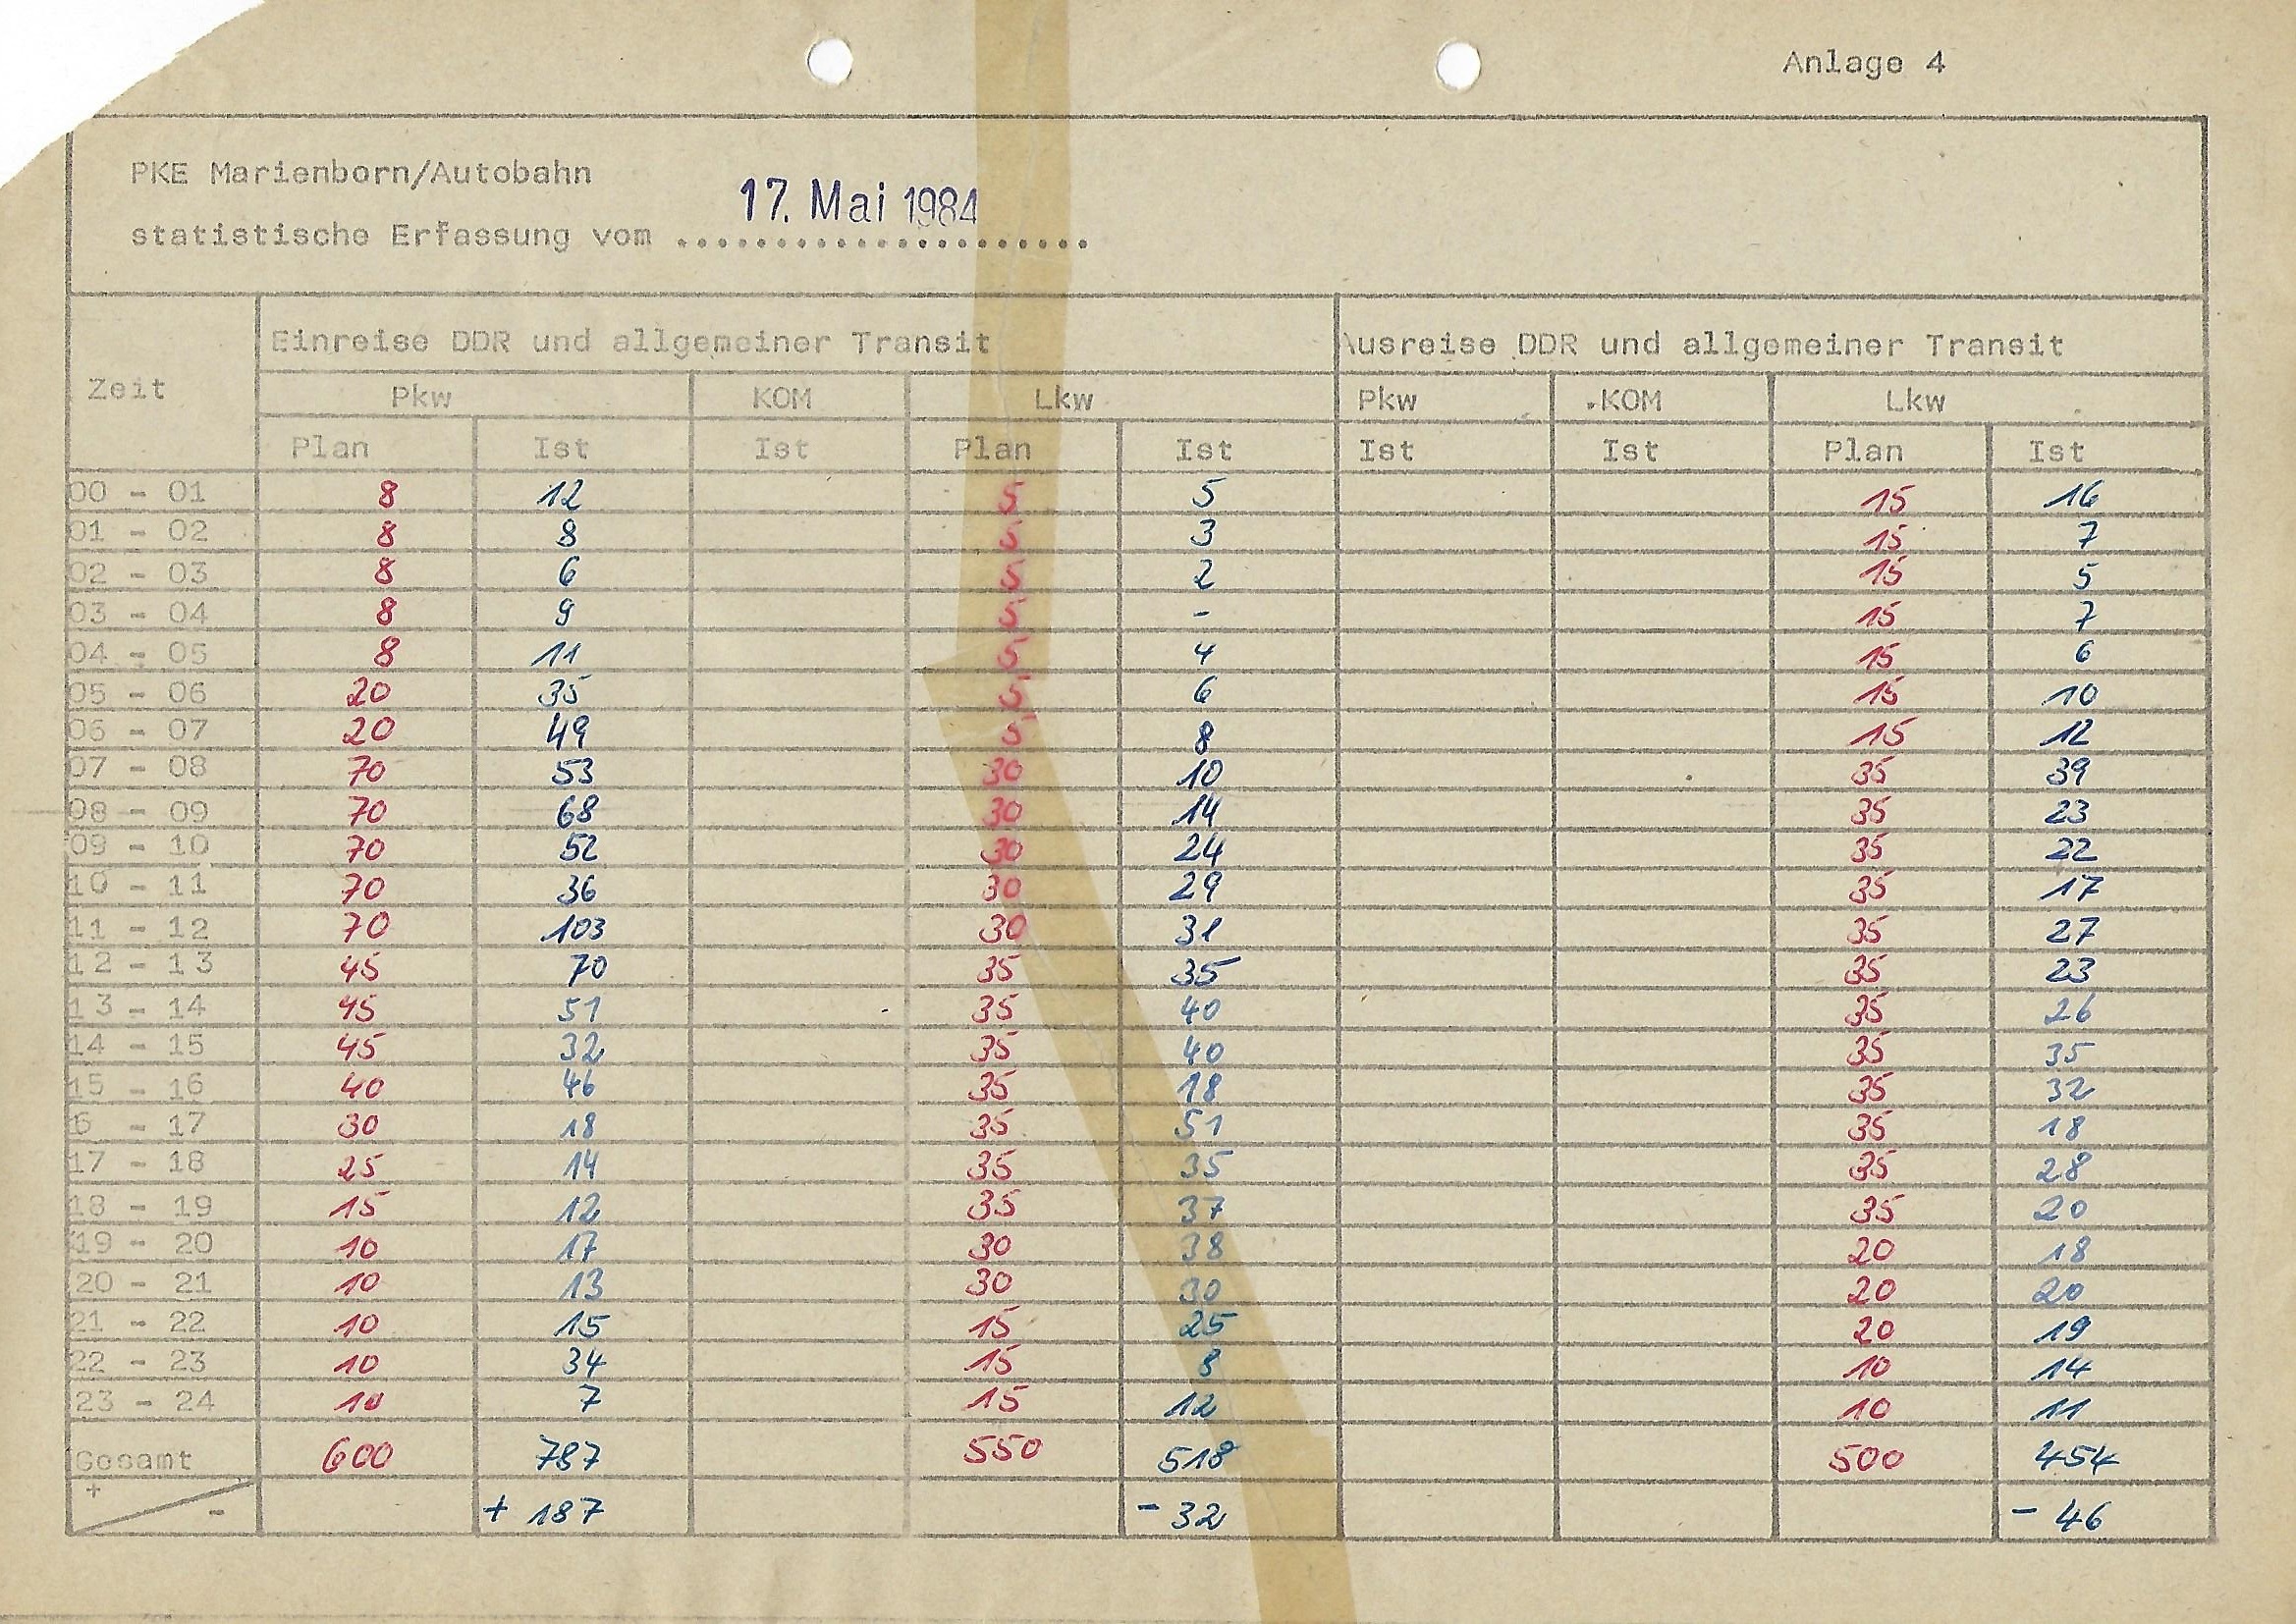 Anlage 4
PKE Marienborn/Autobahn
17. Mai 1984
statistische Erfassung vom .....................
Einreise DDR und allgemeiner Transit Ausreise DDR und allgemeiner Transit
Zeit Pkw KOM Lkw Pkw KOM Lkw
Plan Ist Ist Plan Ist Ist Ist Plan Ist
00 - 01 8 12 5 5 15 16
01 - 02 8 8 5 3 15 7
02 - 03 8 6 5 2 15 5
03 - 04 8 9 5 - 15 7
04 - 05 8 11 5 4 15 6
05 - 06 20 35 5 6 15 10
06 - 07 20 49 5 8 15 12
07 - 08 70 53 30 10 35 39
08 - 09 70 68 30 14 35 23
09 - 10 70 52 30 24 35 22
10 - 11 70 36 30 29 35 17
11 - 12 70 103 30 31 35 27
12 - 13 45 70 35 35 35 23
13 - 14 45 51 35 40 35 26
14 - 15 45 32 35 40 35 35
15 - 16 40 46 35 18 35 32
6 - 17 30 18 35 51 35 18
17 - 18 25 14 35 35 35 28
18 - 19 15 12 35 37 35 20
19 - 20 10 17 30 38 20 18
20 - 21 10 13 30 30 20 20
21 - 22 10 15 15 25 20 19
22 - 23 10 34 15 8 10 14
23 - 24 10 7 15 12 10 11
Gesamt 600 787 550 518 500 454
+ - + 187 - 32 - 46